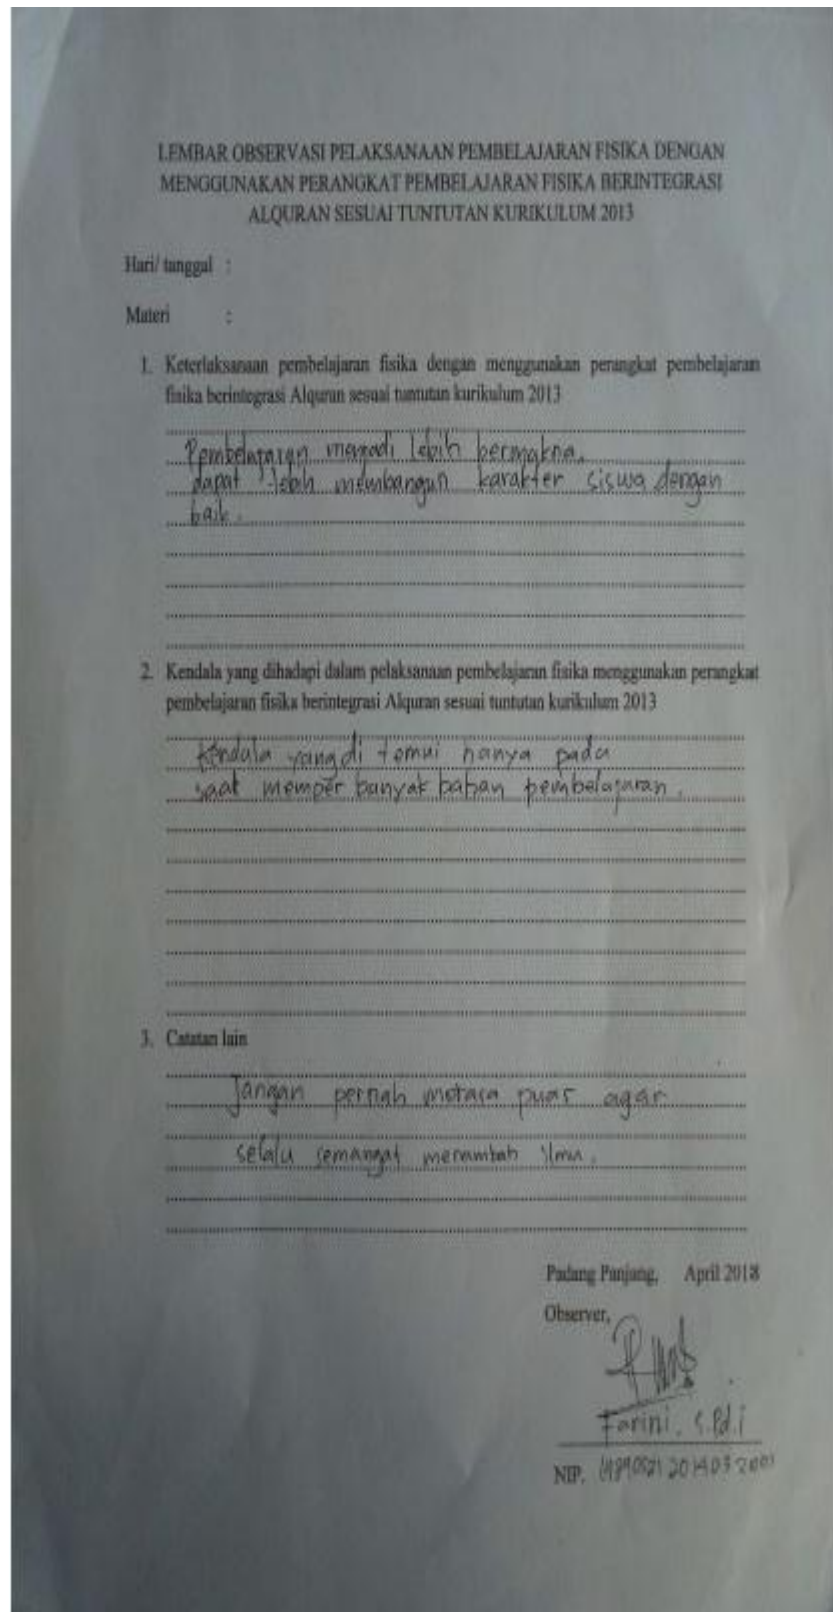 LEMBAR OBSERVASI PELAKSANAAN PEMBELAJARAN FISIKA DENGAN
MENGGUNAKAN PERANGKAT PEMBELAJARAN FISIKA BERINTEGRASI
ALQURAN SESUAI TUNTUTAN KURIKULUM 2013
Hari/ tanggal :
Materi :
1. Keterlaksanaan pembelajaran fisika dengan menggunakan perangkat pembelajaran
fisika berintegrasi Alquran sesuai tuntutan kurikulum 2013
Pembelajaran menjadi lebih bermakna.
dapat lebih membangun karakter siswa dengan
baik.
2. Kendala yang dihadapi dalam pelaksanaan pembelajaran fisika menggunakan perangkat
pembelajaran fisika berintegrasi Alquran sesuai tuntutan kurikulum 2013
Kendala yang di temui hanya pada
saat memper banyak bahan pembelajaran.
3. Catatan lain
Jangan pernah merasa puas agar
selalu semangat menambah ilmu.
Padang Panjang, April 2018
Observer,
Farini, S.Pd.i
NIP.